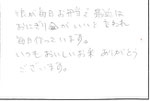 法が毎日お弁当、最近は
おにぎりがいいと言われ
毎日作っています。
いつもおいしいお米 ありがとう
ございます。